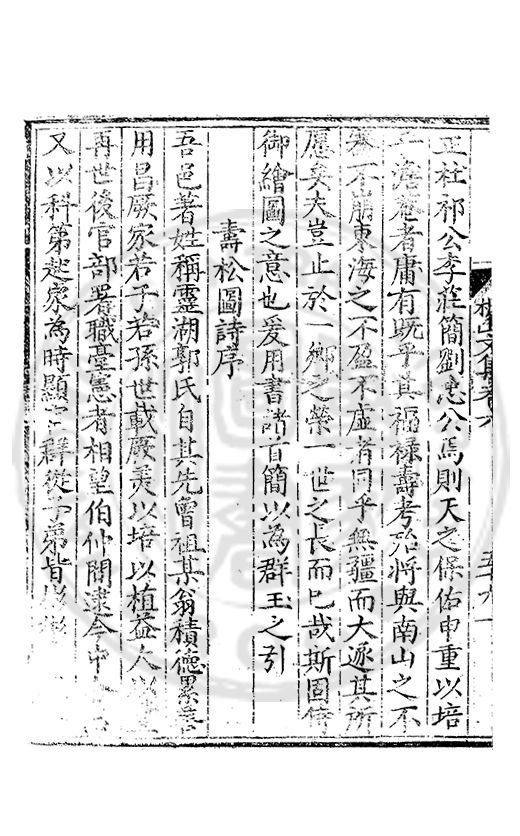 正杜祁公李莊簡劉忠公焉則天之保佑申重以培
澹菴者庸有既乎其福祿壽考殆將與南山之不
不崩東海之不盈不虛者同乎無疆而大遂其所
愿矣夫豈止於一鄉之榮一世之長而已哉斯固侍
御繪圖之意也爰用書諸首簡以為群玉之引
壽松圖詩序
吾邑著姓稱靈湖郭氏自其先曾祖某翁積德累善
用昌厥家若子若孫世載厥美以培以植益久
再世後官部署職臺憲者相望伯仲間逮今中
又以科第起家為時顯宦群從子弟皆彬彬
文集卷六